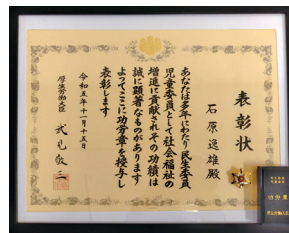 表彰状
石原逸雄殿
あなたは多年にわたり民生委員
児童委員として社会福祉の
増進に貢献されその功績は
誠に顕著なものがあります
よってここに功労章を授与し
表彰します
令和五年十一月十五日
厚生労働大臣 武見敬三
功労章